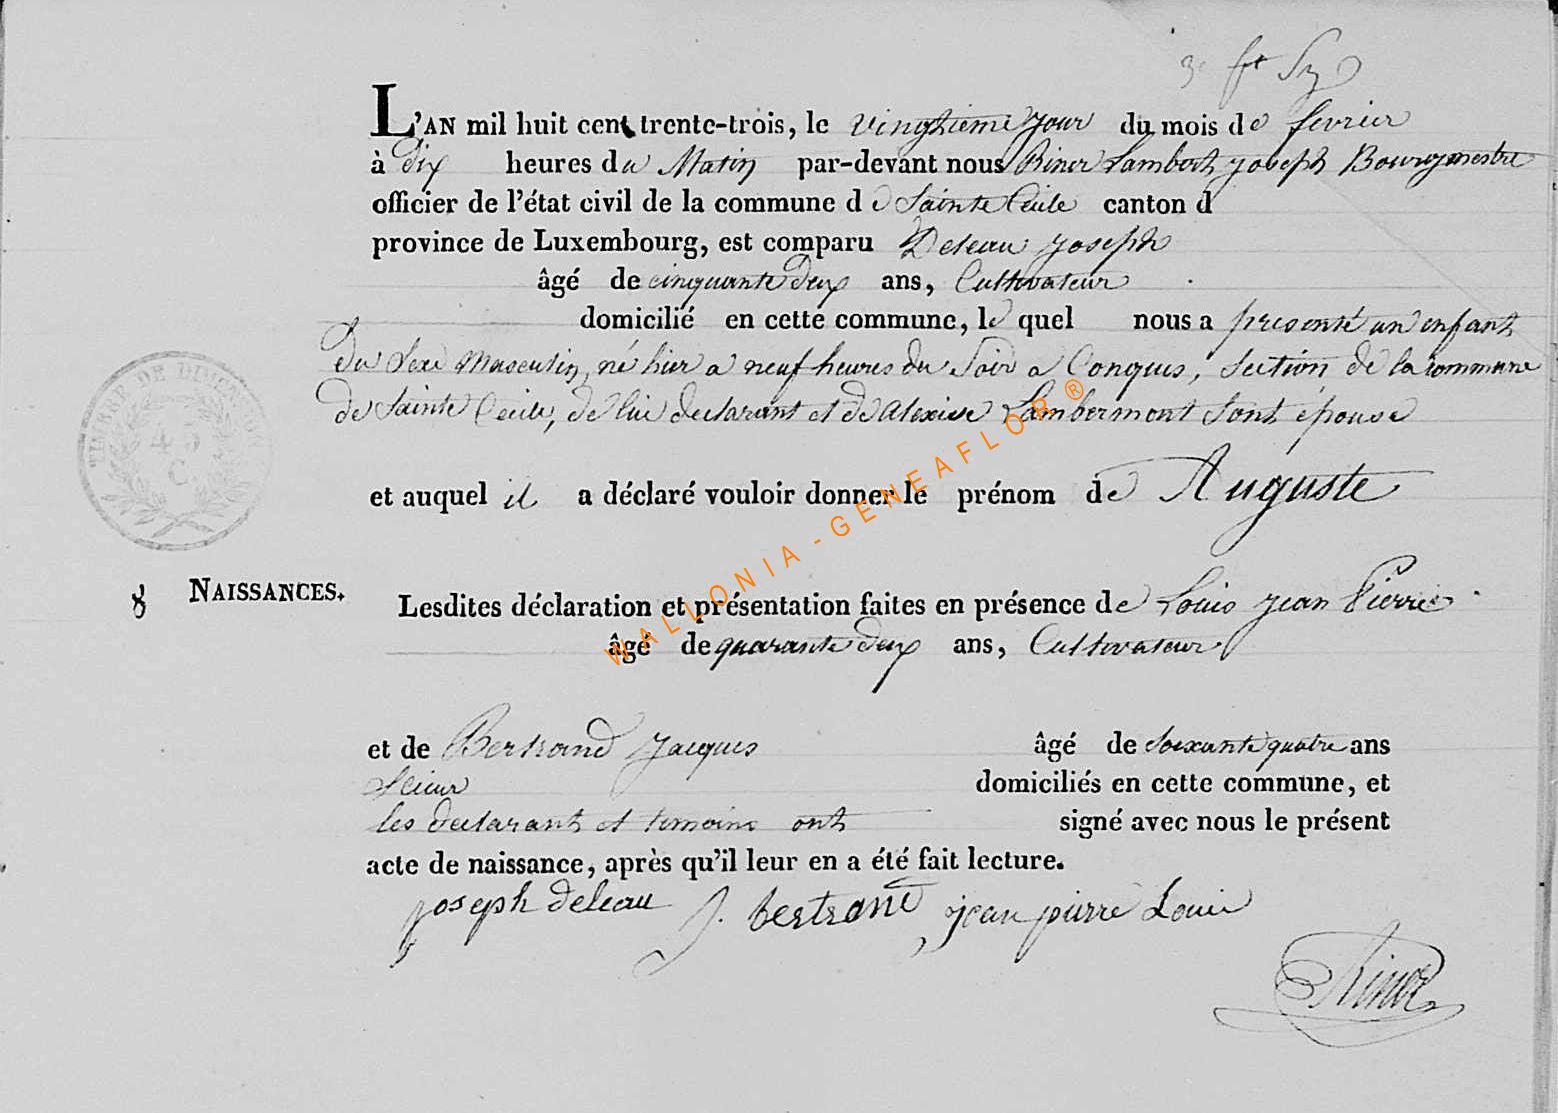 3e ft
L'AN mil huit cent trente-trois, le vingtieme jour du mois de fevrier
à dix heures du Matin par-devant nous Riner Lambert joseph Bourgmestre
officier de l'état civil de la commune de Sainte Cécile canton d
province de Luxembourg, est comparu Deleau joseph
âgé de cinquante deux ans, Cultivateur
domicilié en cette commune, le quel nous a presenté un enfant
du Sexe Masculin, né hier a neuf heures du Soir a Conques, Section de la commune
de Sainte Cecile, de lui declarant et de Alexise Lambermont Sont épouse
et auquel il a déclaré vouloir donner le prénom de Auguste
TIMBRE DE DIMENSION
45
C.
8 NAISSANCES.
Lesdites déclaration et présentation faites en présence de Louis jean Pierre
âgé de quarante deux ans, Cultivateur
et de Bertrand jacques âgé de Soixante quatre ans
Scieur domiciliés en cette commune, et
les declarant et temoins ont signé avec nous le présent
acte de naissance, après qu'il leur en a été fait lecture.
joseph deleau J. bertrand, jean pierre Louis
Riner
WALLONIA - GENEAFLOR ®